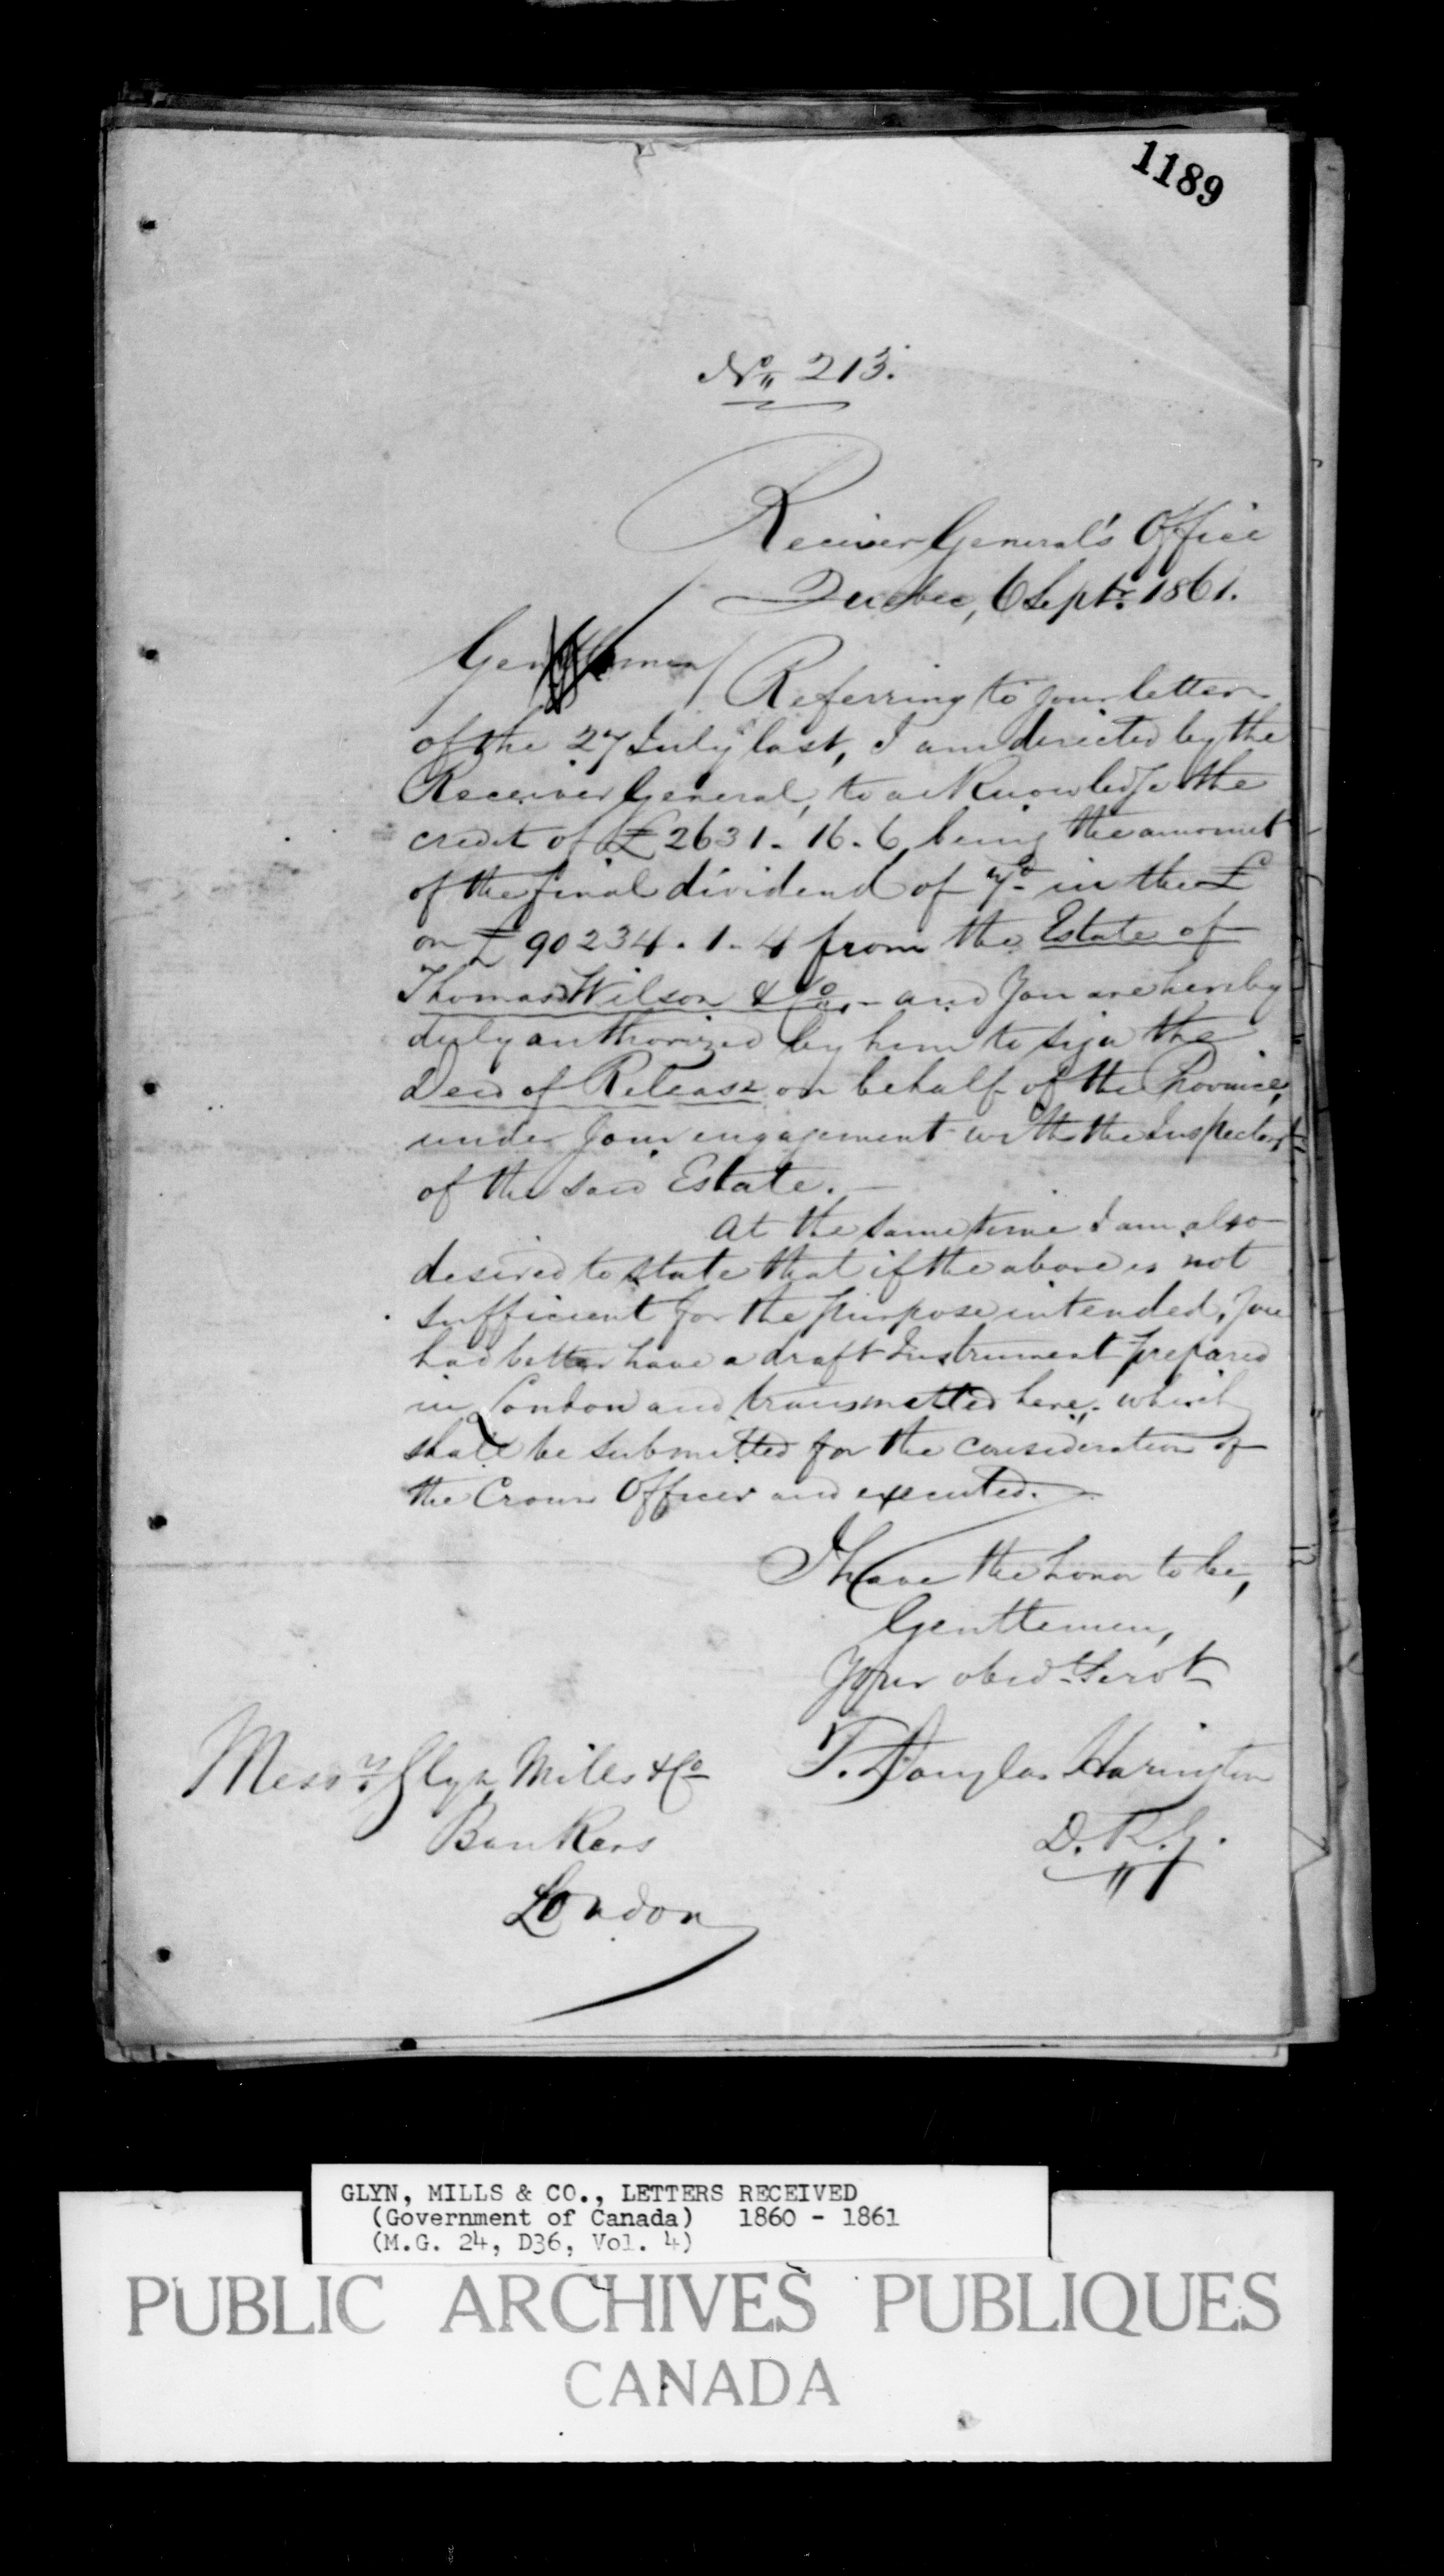 1189
No. 213.
Receiver General's Office
Quebec, 6 Septr. 1861.
Gentlemen
Referring to your letter
of the 27 July last, I am directed by the
Receiver General, to acknowledge the
credit of £2631. 16. 6 being the amount
of the final dividend of 7d in the £
on £90234. 1. 4 from the Estate of
Thomas Wilson & Co. and you are hereby
duly authorized by him to sign the
Deed of Release on behalf of the Province,
under your engagement with the Inspectors
of the said Estate.
At the same time I am also
desired to state that if the above is not
sufficient for the purpose intended, you
had better have a draft Instrument prepared
in London and transmitted here, which
shall be submitted for the consideration of
the Crown Officer and executed.
I have the honor to be,
Gentlemen,
Your obedt Servt
T. Douglas Harington
D. R. G.
Messrs Glyn Mills & Co
Bankers
London
GLYN, MILLS & CO., LETTERS RECEIVED
(Government of Canada) 1860 - 1861
(M.G. 24, D36, Vol. 4)
PUBLIC ARCHIVES PUBLIQUES
CANADA